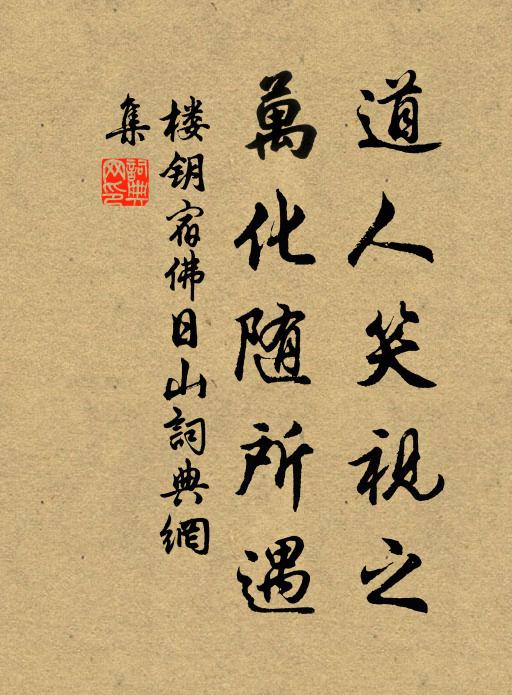 道人笑视之
萬化随所遇
楼钥宿佛日山詞典網
集
詞典
网印